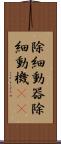 除細動器除
細動機